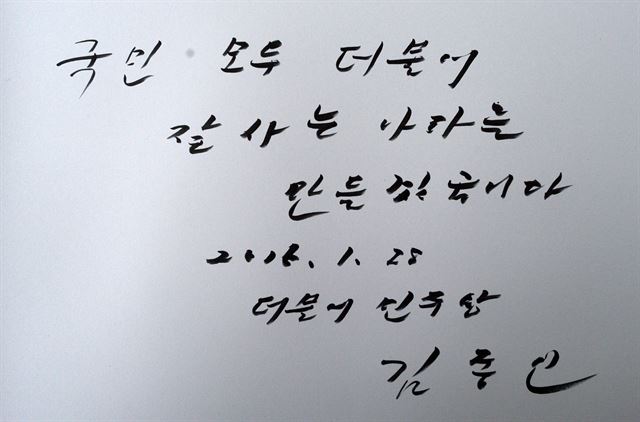 국민 모두 더불어
잘 사는 나라를
만들겠읍니다
2016. 1. 28
더불어 민주당
김종인